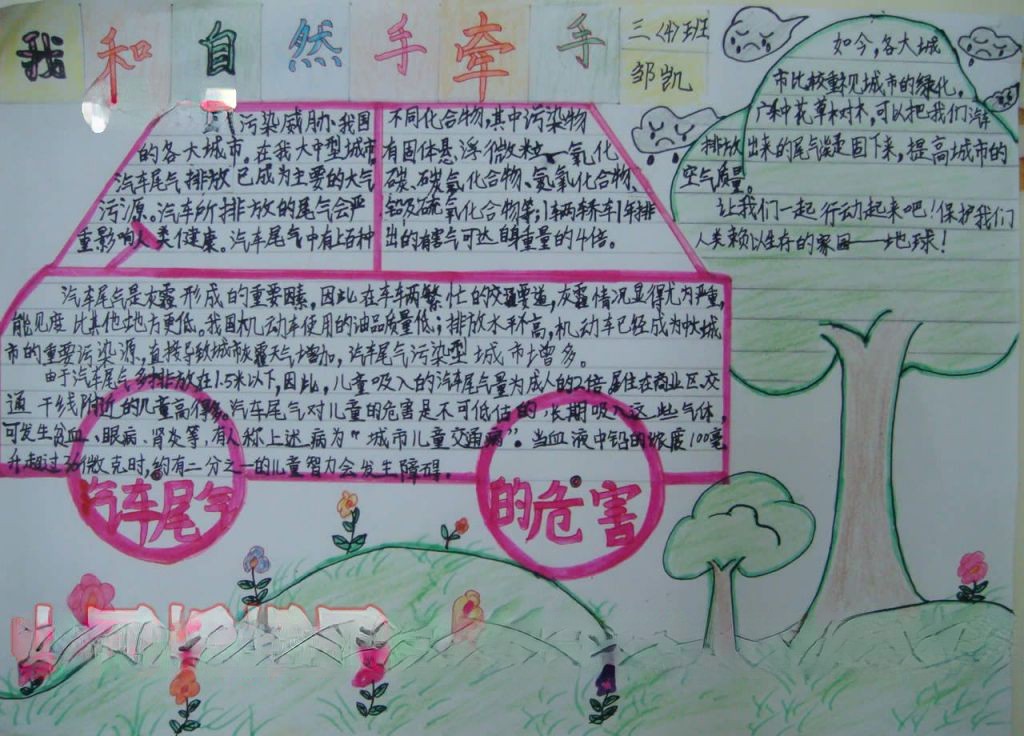 我和自然手牵手
三(4)班
邹凯
污染威胁、我国
的各大城市。在我大中型城市
汽车尾气排放已成为主要的大气
污源。汽车所排放的尾气会严
重影响人类健康。汽车尾气中有上百种
不同化合物,其中污染物
有固体悬浮微粒、一氧化
碳、碳氢化合物、氮氧化合物、
铅及硫氧化合物等;1辆轿车1年排
出的有害气可达自身重量的4倍。
汽车尾气是灰霾形成的重要因素,因此在车车辆繁忙的交通要道,灰霾情况显得尤为严重,
能见度比其他地方更低。我国机动车使用的油品质量低;排放水平高,机动车已经成为城
市的重要污染源,直接导致城市灰霾天气增加,汽车尾气污染型城市增多。
由于汽车尾气,多排放在1.5米以下,因此,儿童吸入的汽车尾气量为成人的2倍居住在商业区交
通干线附近的儿童高得多。汽车尾气对儿童的危害是不可低估的,长期吸入这些气体,
可发生贫血、眼病、肾炎等,有人称上述病为“城市儿童交通病”。当血液中铅的浓度100毫
升超过36微克时,约有二分之一的儿童智力会发生障碍。
汽车尾气的危害
如今,各大城
市比较重视城市的绿化。
广种花草和树木,可以把我们汽车
排放出来的尾气固下来,提高城市的
空气质量。
让我们一起行动起来吧!保护我们
人类赖以生存的家园——地球!